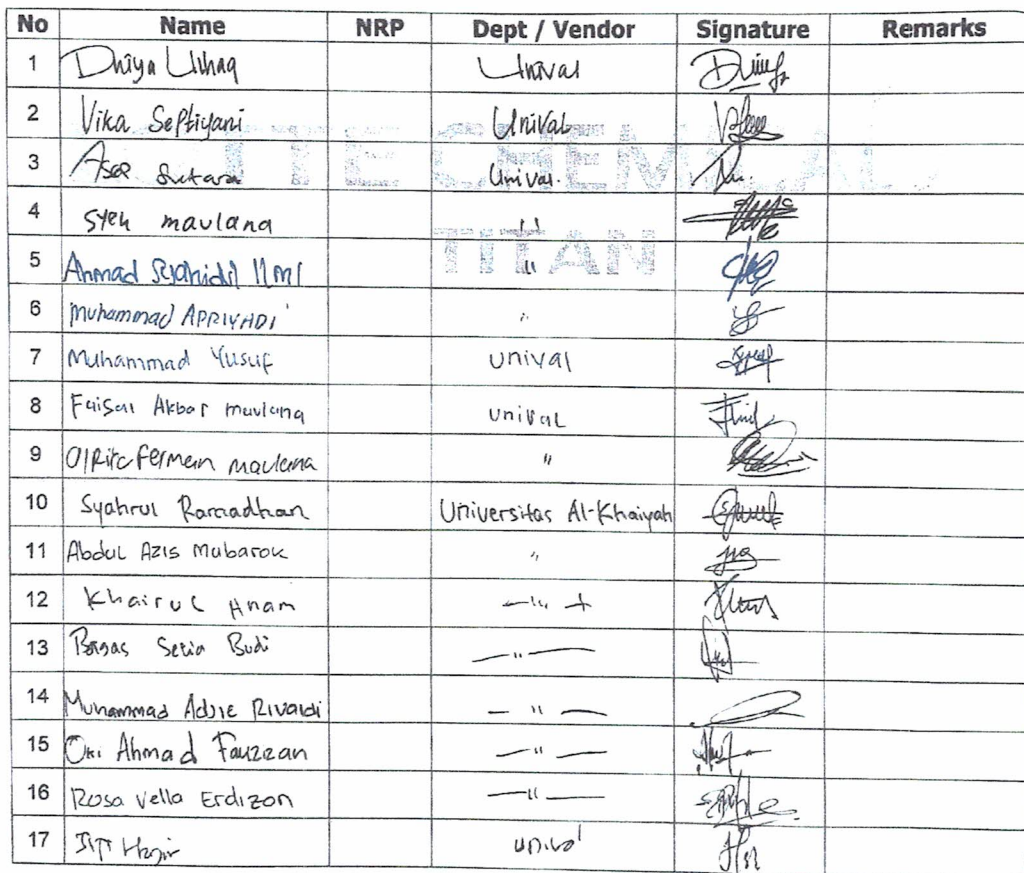 No Name NRP Dept / Vendor Signature Remarks
1 Dhiya Ulhaq Unival
2 Vika Septiyani Unival
3 Asep Sutara Unival.
4 syeh maulana "
5 Ahmad Syahidil Ilmi "
6 Muhammad APRIYADI "
7 Muhammad Yusuf unival
8 Faisal Akbar maulana unival
9 maulana "
10 Syahrul Ramadhan Universitas Al-Khaiyah
11 Abdul Azis Mubarok "
12 Khairul Anam — " —
13 Bagas Setia Budi — " —
14 Muhammad Adjie Rivaldi — " —
15 Oki Ahmad Fauzzan — " —
16 Rosa Vella Erdizon — " —
17 unival
TITAN